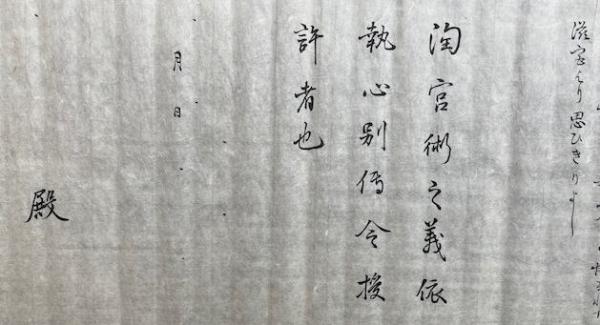 滋宮より思ひきりよし
淘宮術之義依
執心別傳令授
許者也
月日
殿